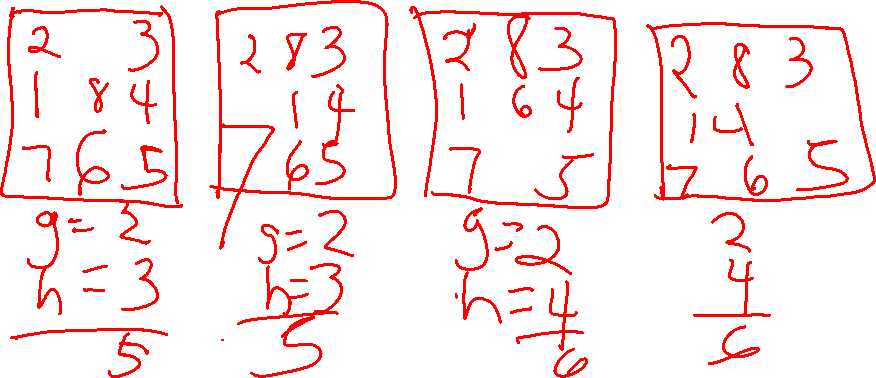 2 3
1 8 4
7 6 5
g=2
h=3
5
2 8 3
1 4
7 6 5
g=2
h=3
5
2 8 3
1 6 4
7 5
g=2
h=4
6
2 8 3
1 4
7 6 5
2
4
6